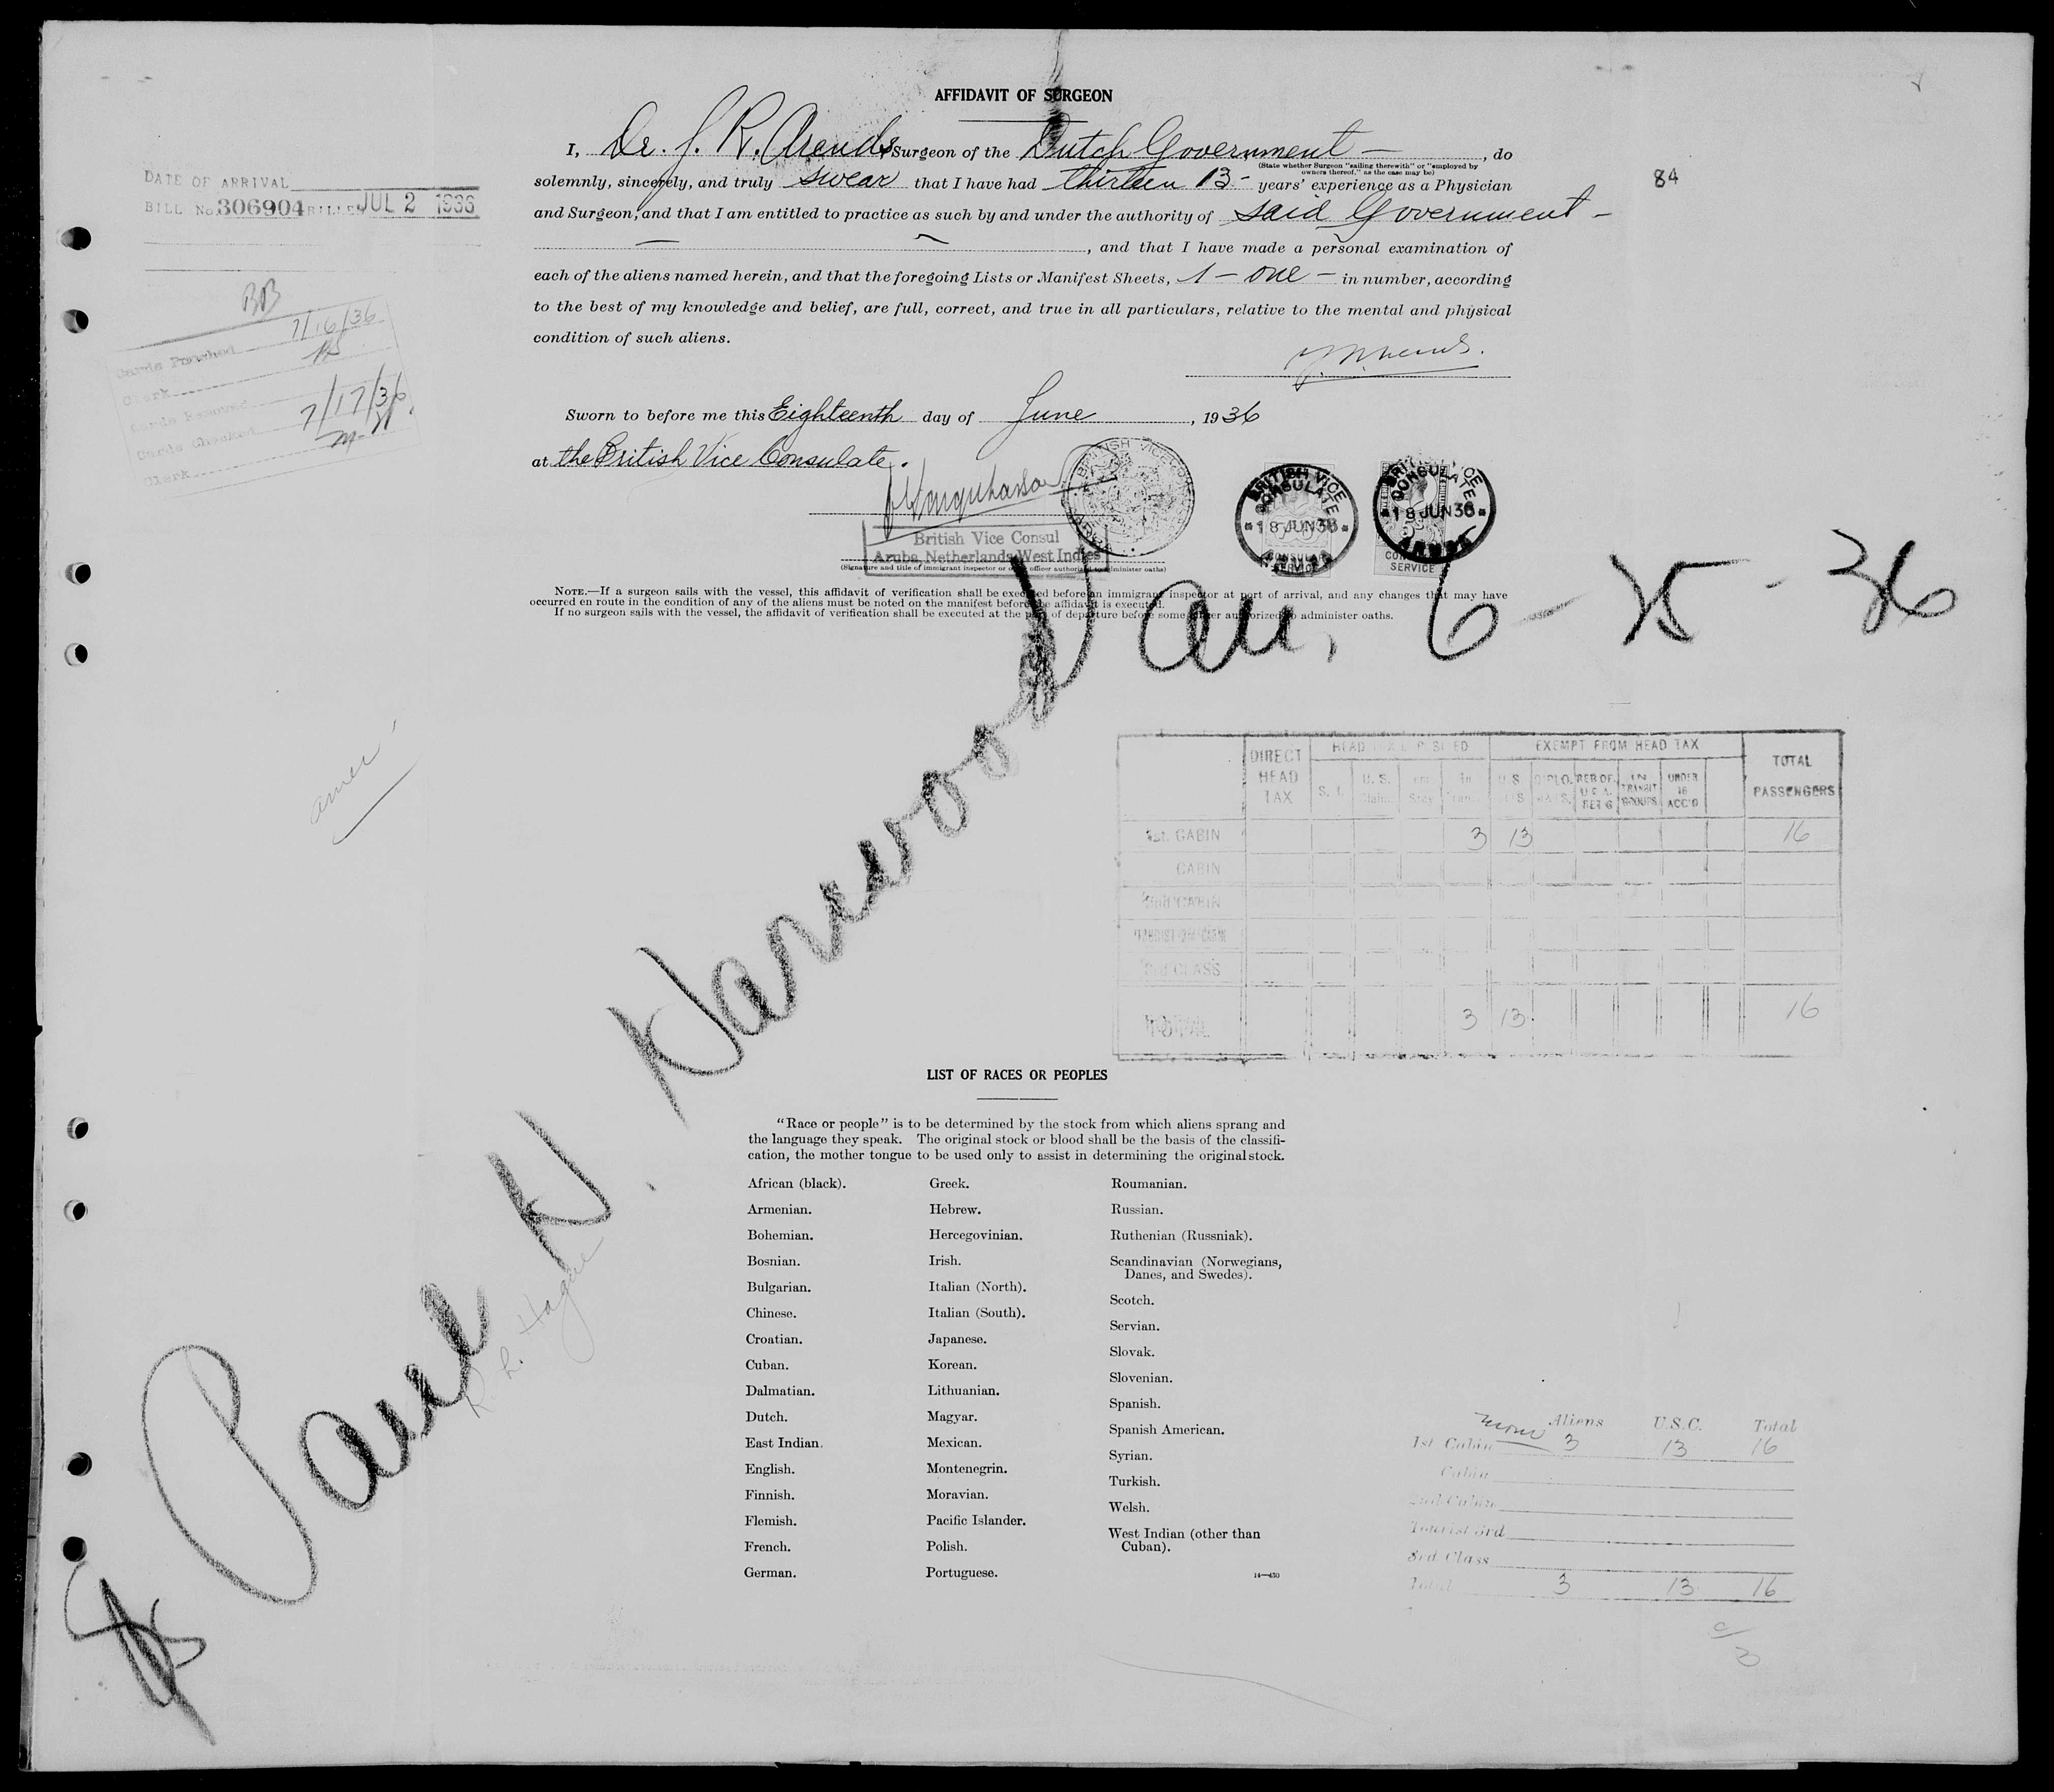 AFFIDAVIT OF SURGEON
I, Dr. J. R. Arends, Surgeon of the Dutch Government —, do
(State whether Surgeon "sailing therewith" or "employed by
owners thereof," as the case may be)
solemnly, sincerely, and truly swear that I have had thirteen 13 - years' experience as a Physician
and Surgeon, and that I am entitled to practice as such by and under the authority of said Government -
, and that I have made a personal examination of
each of the aliens named herein, and that the foregoing Lists or Manifest Sheets, 1 - one - in number, according
to the best of my knowledge and belief, are full, correct, and true in all particulars, relative to the mental and physical
condition of such aliens.
Sworn to before me this Eighteenth day of June, 1936
at the British Vice Consulate.
British Vice Consul
Aruba, Netherlands West Indies
(Signature and title of immigrant inspector or other officer authorized to administer oaths)
BRITISH VICE CONSULATE
18 JUN 36
CONSULAR SERVICE
BRITISH VICE CONSULATE
18 JUN 36
ARUBA
SERVICE
NOTE.—If a surgeon sails with the vessel, this affidavit of verification shall be executed before an immigrant inspector at port of arrival, and any changes that may have
occurred en route in the condition of any of the aliens must be noted on the manifest before the affidavit is executed.
If no surgeon sails with the vessel, the affidavit of verification shall be executed at the port of departure before some officer authorized to administer oaths.
84
DATE OF ARRIVAL
BILL No. 306904 BILLED JUL 2 1936
BB
Cards Punched 7/16/36
Clerk
Cards Received
Cards Checked 7/17/36
Clerk
6-25-36
Paul H. Harwood
R. L. Hague
DIRECT HEAD TAX
HEAD TAX DEPOSITED
EXEMPT FROM HEAD TAX
TOTAL PASSENGERS
IN TRANSIT GROUPS
UNDER 16 ACC'D
1st. CABIN 3 13 16
CABIN
2nd CABIN
TOURIST 3rd CABIN
3rd CLASS
TOTAL 3 13 16
LIST OF RACES OR PEOPLES
"Race or people" is to be determined by the stock from which aliens sprang and
the language they speak. The original stock or blood shall be the basis of the classifi-
cation, the mother tongue to be used only to assist in determining the original stock.
African (black).
Armenian.
Bohemian.
Bosnian.
Bulgarian.
Chinese.
Croatian.
Cuban.
Dalmatian.
Dutch.
East Indian.
English.
Finnish.
Flemish.
French.
German.
Greek.
Hebrew.
Hercegovinian.
Irish.
Italian (North).
Italian (South).
Japanese.
Korean.
Lithuanian.
Magyar.
Mexican.
Montenegrin.
Moravian.
Pacific Islander.
Polish.
Portuguese.
Roumanian.
Russian.
Ruthenian (Russniak).
Scandinavian (Norwegians,
Danes, and Swedes).
Scotch.
Servian.
Slovak.
Slovenian.
Spanish.
Spanish American.
Syrian.
Turkish.
Welsh.
West Indian (other than
Cuban).
14—430
Aliens U.S.C. Total
1st Cabin 3 13 16
Cabin
2nd Cabin
Tourist 3rd
3rd Class
Total 3 13 16